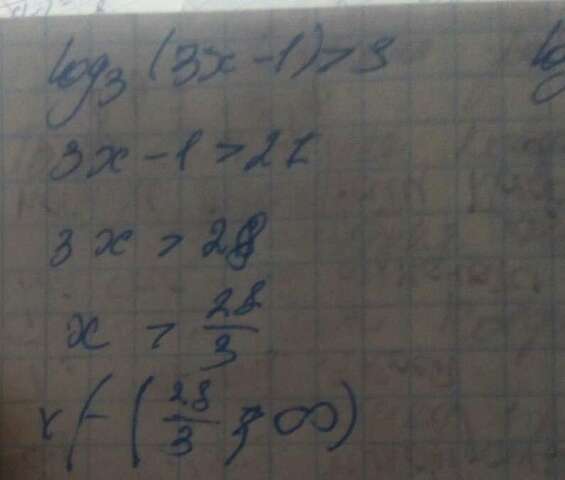 log₃(3x-1)>3
3x-1>27
3x > 28
x > 28/3
x ∈ (28/3; ∞)